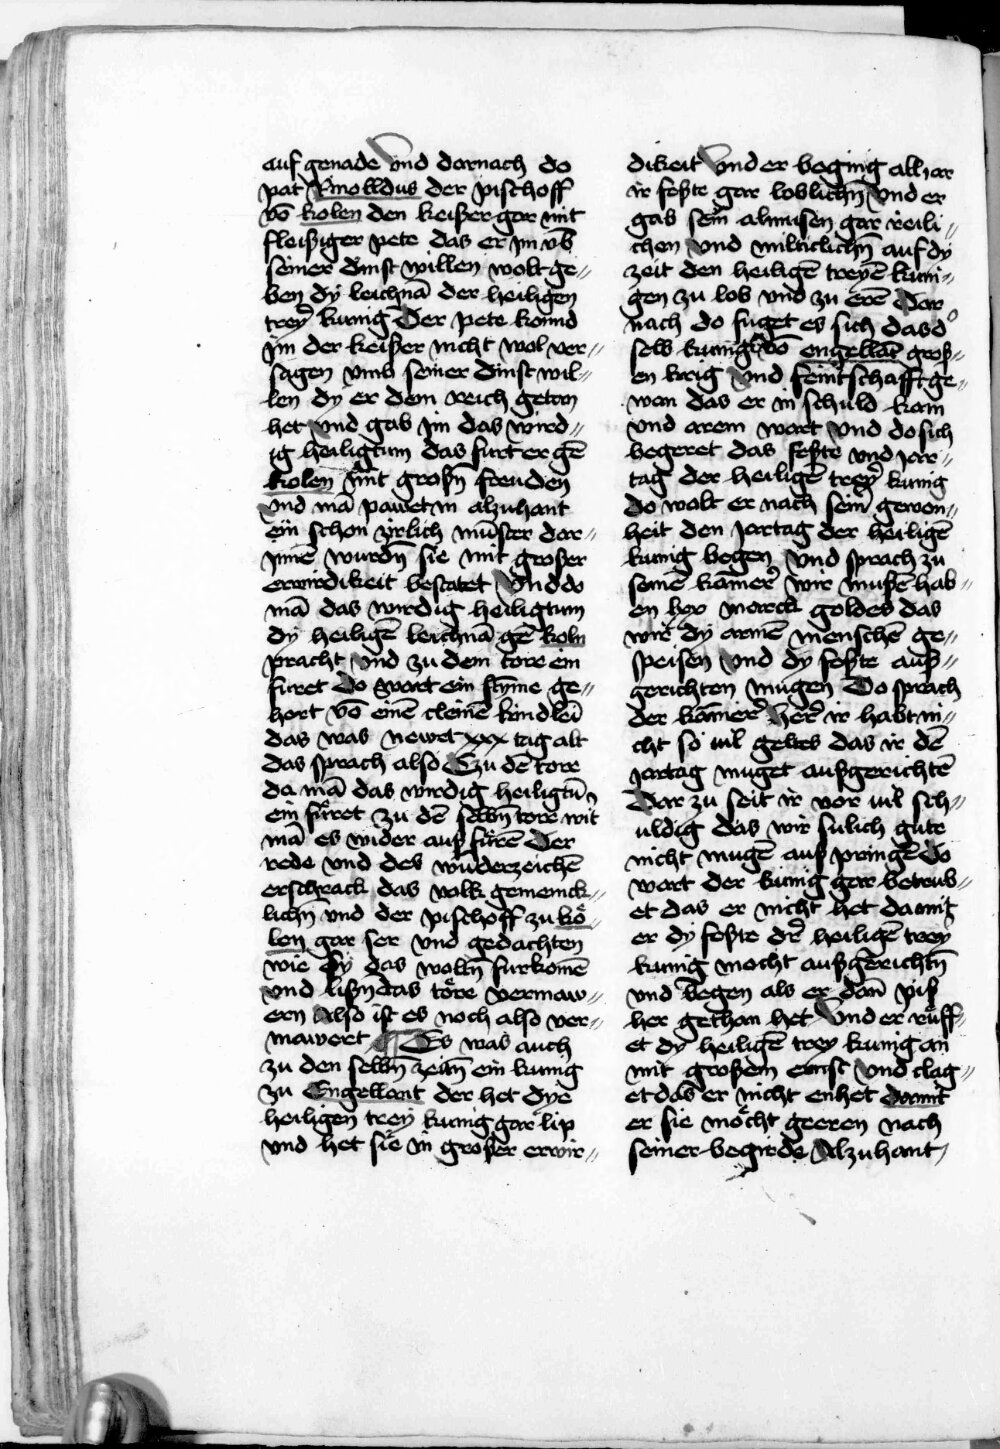 auf genade Vnd dornach do
pat Rinolldus der pischoff
vō kolen den keißer gar mit
fleißiger pete das er jm vb̄
seiner dinst willen wolt ge〃
ben dÿ leichnā der heiligen
treÿ kunig Der pete konnd
jm der keißer nicht wol ver〃
sagen vmb seiner dinst wil〃
len dÿ er dem reich geton
het vnd gab jm das wird〃
ig heiligtum das furt er gē
kolen mit großn̄ freuden
Vnd mā pawet in alzuhant
ein schon ÿrlich münster dor〃
jnnē wurdn̄ sie mit großer
erwirdikeit bestatet Vnd do
mā das wirdig heiligtum
dÿ heiligē leichnā gē koln
pracht Vnd zu dem tore ein
furet Do wart ein stÿme ge〃
hort vō einē cleinē kindlei
das was newet xxx tag alt
das sprach also Zu dē tore
da mā das wirdig heiligtū
ein füret zu dē selbn̄ tore wirt
mā es wider auß fürē Der
rede vnd des wūderzeichē
erschrack das volk gemeinck〃
lichn̄ vnd der pischoff zu kö〃
len gar ser vnd gedachten
wie sy das wolln̄ furkomē
vnd lißn̄ das töre vermaw〃
ern Also ist es noch also ver〃
mawert ¶ Es was auch
zu den selbn̄ zeitn̄ ein kunig
zu Engellant der het dye
heiligen treÿ kunig gar lip
vnd het sie in großer erwir〃
dikeit Vnd er beging all jar
ir feste gar loblichn̄ Vnd er
gab sein almusen gar reili〃
chen Vnd milticlichn̄ auf dÿ
zeit den heiligē treyē kuni〃
gen zu lob vnd zu erē Dar
nach do fuget es sich das d͛
selb kunig vō engellāt groß〃
en krig Vnd feintschafft ge〃
wan das er in schuld kam
vnd arem wart Vnd do sich
begeret das feste vnd jar〃
tag der heiligē treÿ kunig
do wolt er nach sein̄ gewon〃
heit den jartag der heiligē
kunig begen Vnd sprach zu
seinē kāmer͛ wir mußē hab〃
en marck goldes das
wir dÿ armē menschē ge〃
speisen Vnd dÿ feste auß〃
gerichten mügen Do sprach
der kāmer͛ Her͛ ir habt ni〃
cht so vil geltes das ir dē
jartag müget außgerichtē
Dar zu seit ir vor vil sch〃
uldig das wir sulich gute
nicht mugē auß pringē Do
wart der kunig gar betrub〃
et das er nicht het damit
er dÿ feste dr͛ heiligē treÿ
kunig mocht außgerichtn̄
vnd begen als er dan̄ piß
her gethan het Vnd er rüff〃
et dÿ heiligē trey kunig an
mit großem ernst Vnd clag〃
et das er nicht enhet domit
er sie möcht geeren nach
seiner begirde Alzuhant